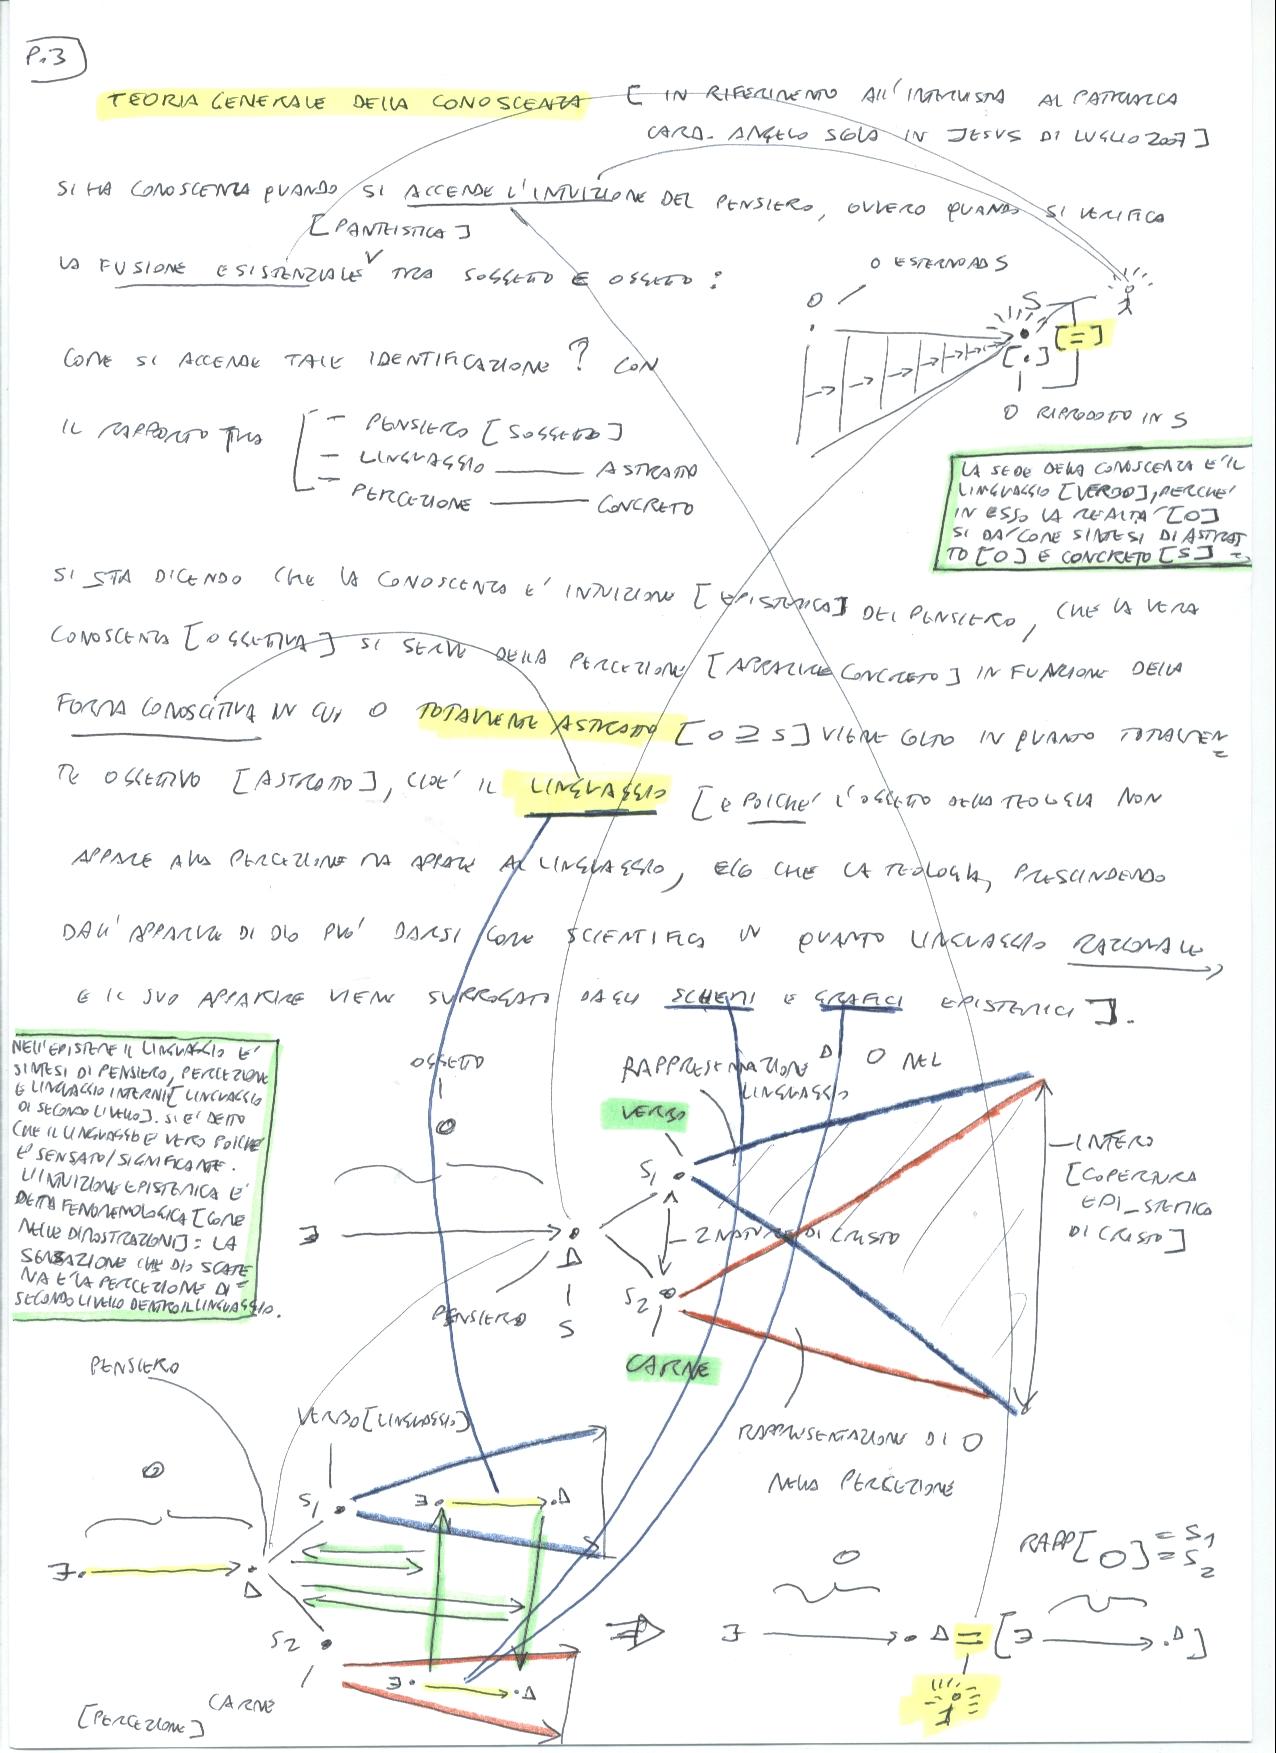 P.3
TEORIA GENERALE DELLA CONOSCENZA [ IN RIFERIMENTO ALL'INTERVISTA AL PATRIARCA
CARD. ANGELO SCOLA IN JESUS DI LUGLIO 2007 ]
SI HA CONOSCENZA QUANDO SI ACCENDE L'INTUIZIONE DEL PENSIERO, OVVERO QUANDO SI VERIFICA
[ PANTEISTICA ]
LA FUSIONE ESISTENZIALE V TRA SOGGETTO E OGGETTO :
O ESTERNO AD S
O
S
[ = ]
[ . ]
O RIPRODOTTO IN S
COME SI ACCENDE TALE IDENTIFICAZIONE ? CON
IL RAPPORTO TRA
- PENSIERO [ SOGGETTO ]
- LINGUAGGIO —— ASTRATTO
- PERCEZIONE —— CONCRETO
LA SEDE DELLA CONOSCENZA E' IL
LINGUAGGIO [VERBO], PERCHE'
IN ESSO LA REALTA' [O]
SI DA' COME SINTESI DI ASTRAT
TO [O] E CONCRETO [S] =
SI STA DICENDO CHE LA CONOSCENZA E' INTUIZIONE [ EPISTEMICA ] DEL PENSIERO, CHE LA VERA
CONOSCENZA [ OGGETTIVA ] SI SERVE DELLA PERCEZIONE [ APPARIRE CONCRETO ] IN FUNZIONE DELLA
FORMA CONOSCITIVA IN CUI O TOTALMENTE ASTRATTO [ O ⊇ S ] VIENE COLTO IN QUANTO TOTALMEN=
TE OGGETTIVO [ ASTRATTO ], CIOE' IL LINGUAGGIO [ E POICHE' L'OGGETTO DELLA TEOLOGIA NON
APPARE ALLA PERCEZIONE MA APPARE AL LINGUAGGIO, ECCO CHE LA TEOLOGIA, PRESCINDENDO
DALL'APPARIRE DI DIO PUO' DARSI COME SCIENTIFICA IN QUANTO LINGUAGGIO RAZIONALE,
E IL SUO APPARIRE VIENE SURROGATO DAGLI SCHEMI E GRAFICI EPISTEMICI ].
NELL'EPISTEME IL LINGUAGGIO E'
SINTESI DI PENSIERO, PERCEZIONE
E LINGUAGGIO INTERNI [ LINGUAGGIO
DI SECONDO LIVELLO ]. SI E' DETTO
CHE IL LINGUAGGIO E' VERO POICHE'
E' SENSATO / SIGNIFICANTE.
L'INTUIZIONE EPISTEMICA E'
DETTA FENOMENOLOGICA [ COME
NELLE DIMOSTRAZIONI ] : LA
SENSAZIONE CHE DIO SCATE
NA E' LA PERCEZIONE DI =
SECONDO LIVELLO DENTRO IL LINGUAGGIO.
OGGETTO
O
∃
Δ
PENSIERO
S
RAPPRESENTAZIONE DI O NEL
LINGUAGGIO
VERBO
S1
2 NATURE DI CRISTO
S2
CARNE
INTERO
[ COPERTURA
EPI_STEMICA
DI CRISTO ]
RAPPRESENTAZIONE DI O
NELLA PERCEZIONE
PENSIERO
VERBO [ LINGUAGGIO ]
O
S1
∃ Δ
∃ Δ
S2
∃ Δ
CARNE
[ PERCEZIONE ]
RAPP [ O ] = S1
= S2
O
∃ Δ = [ ∃ Δ ]